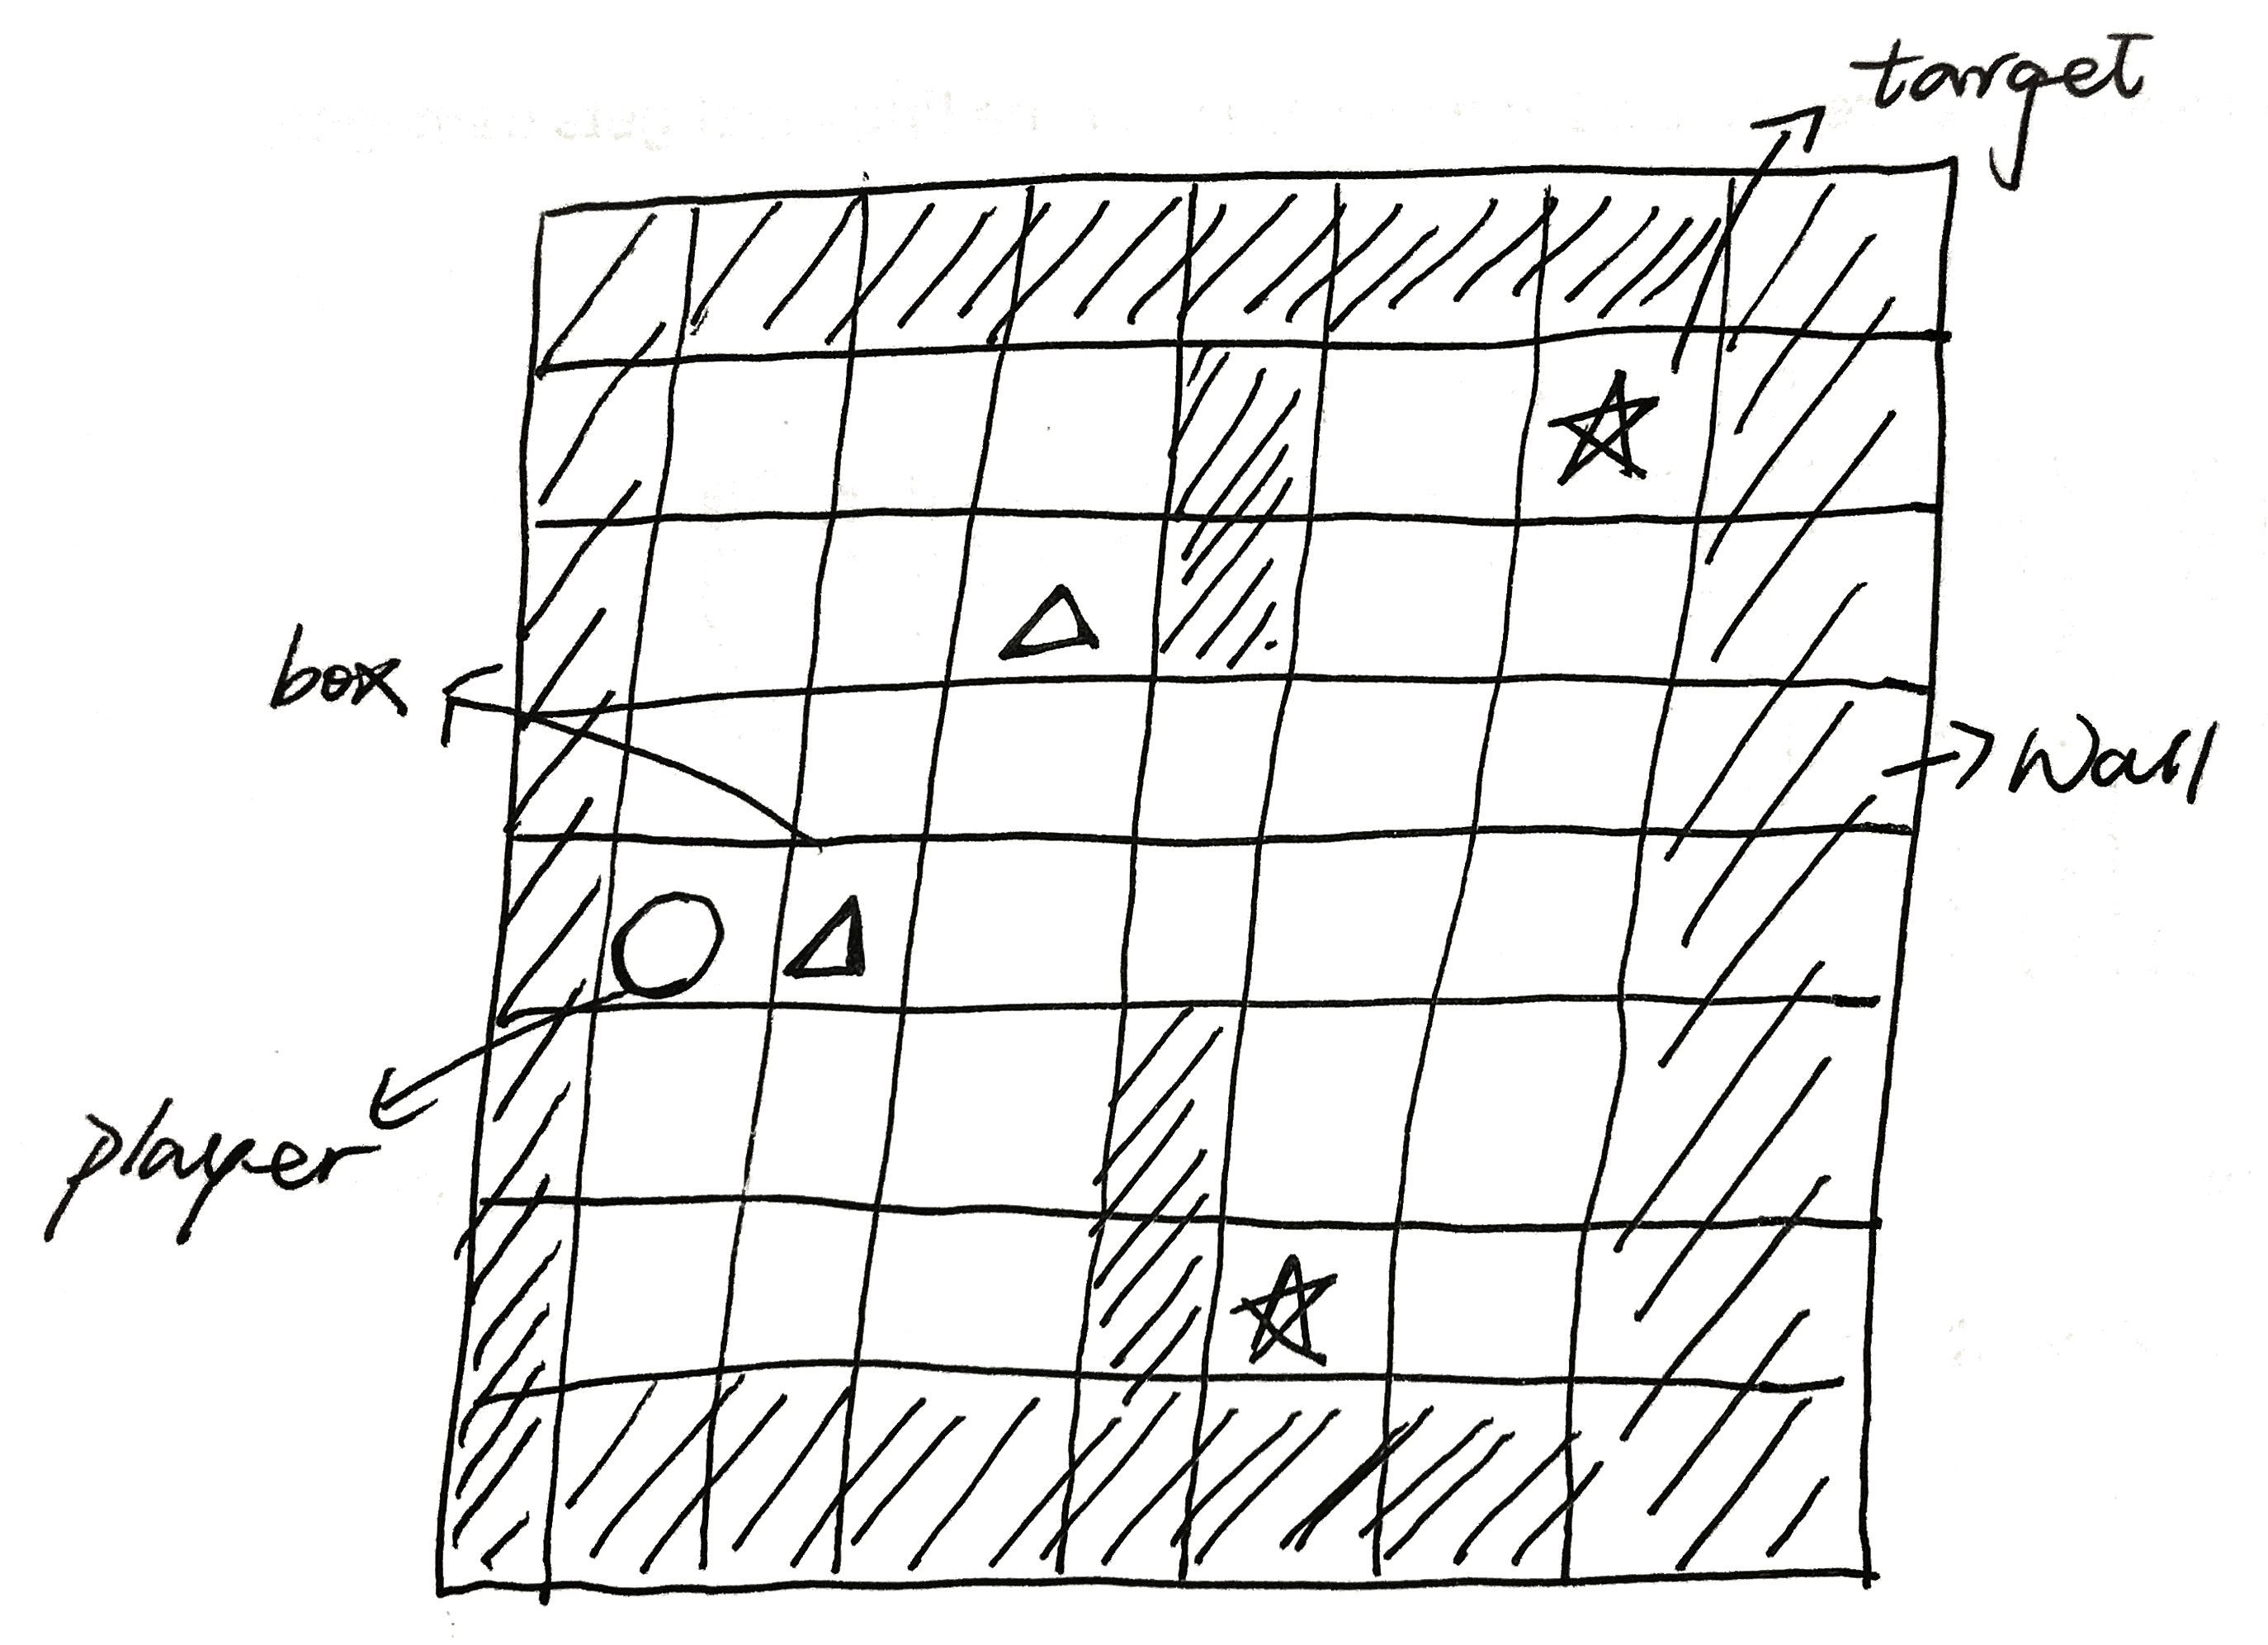 target
box
Wall
player